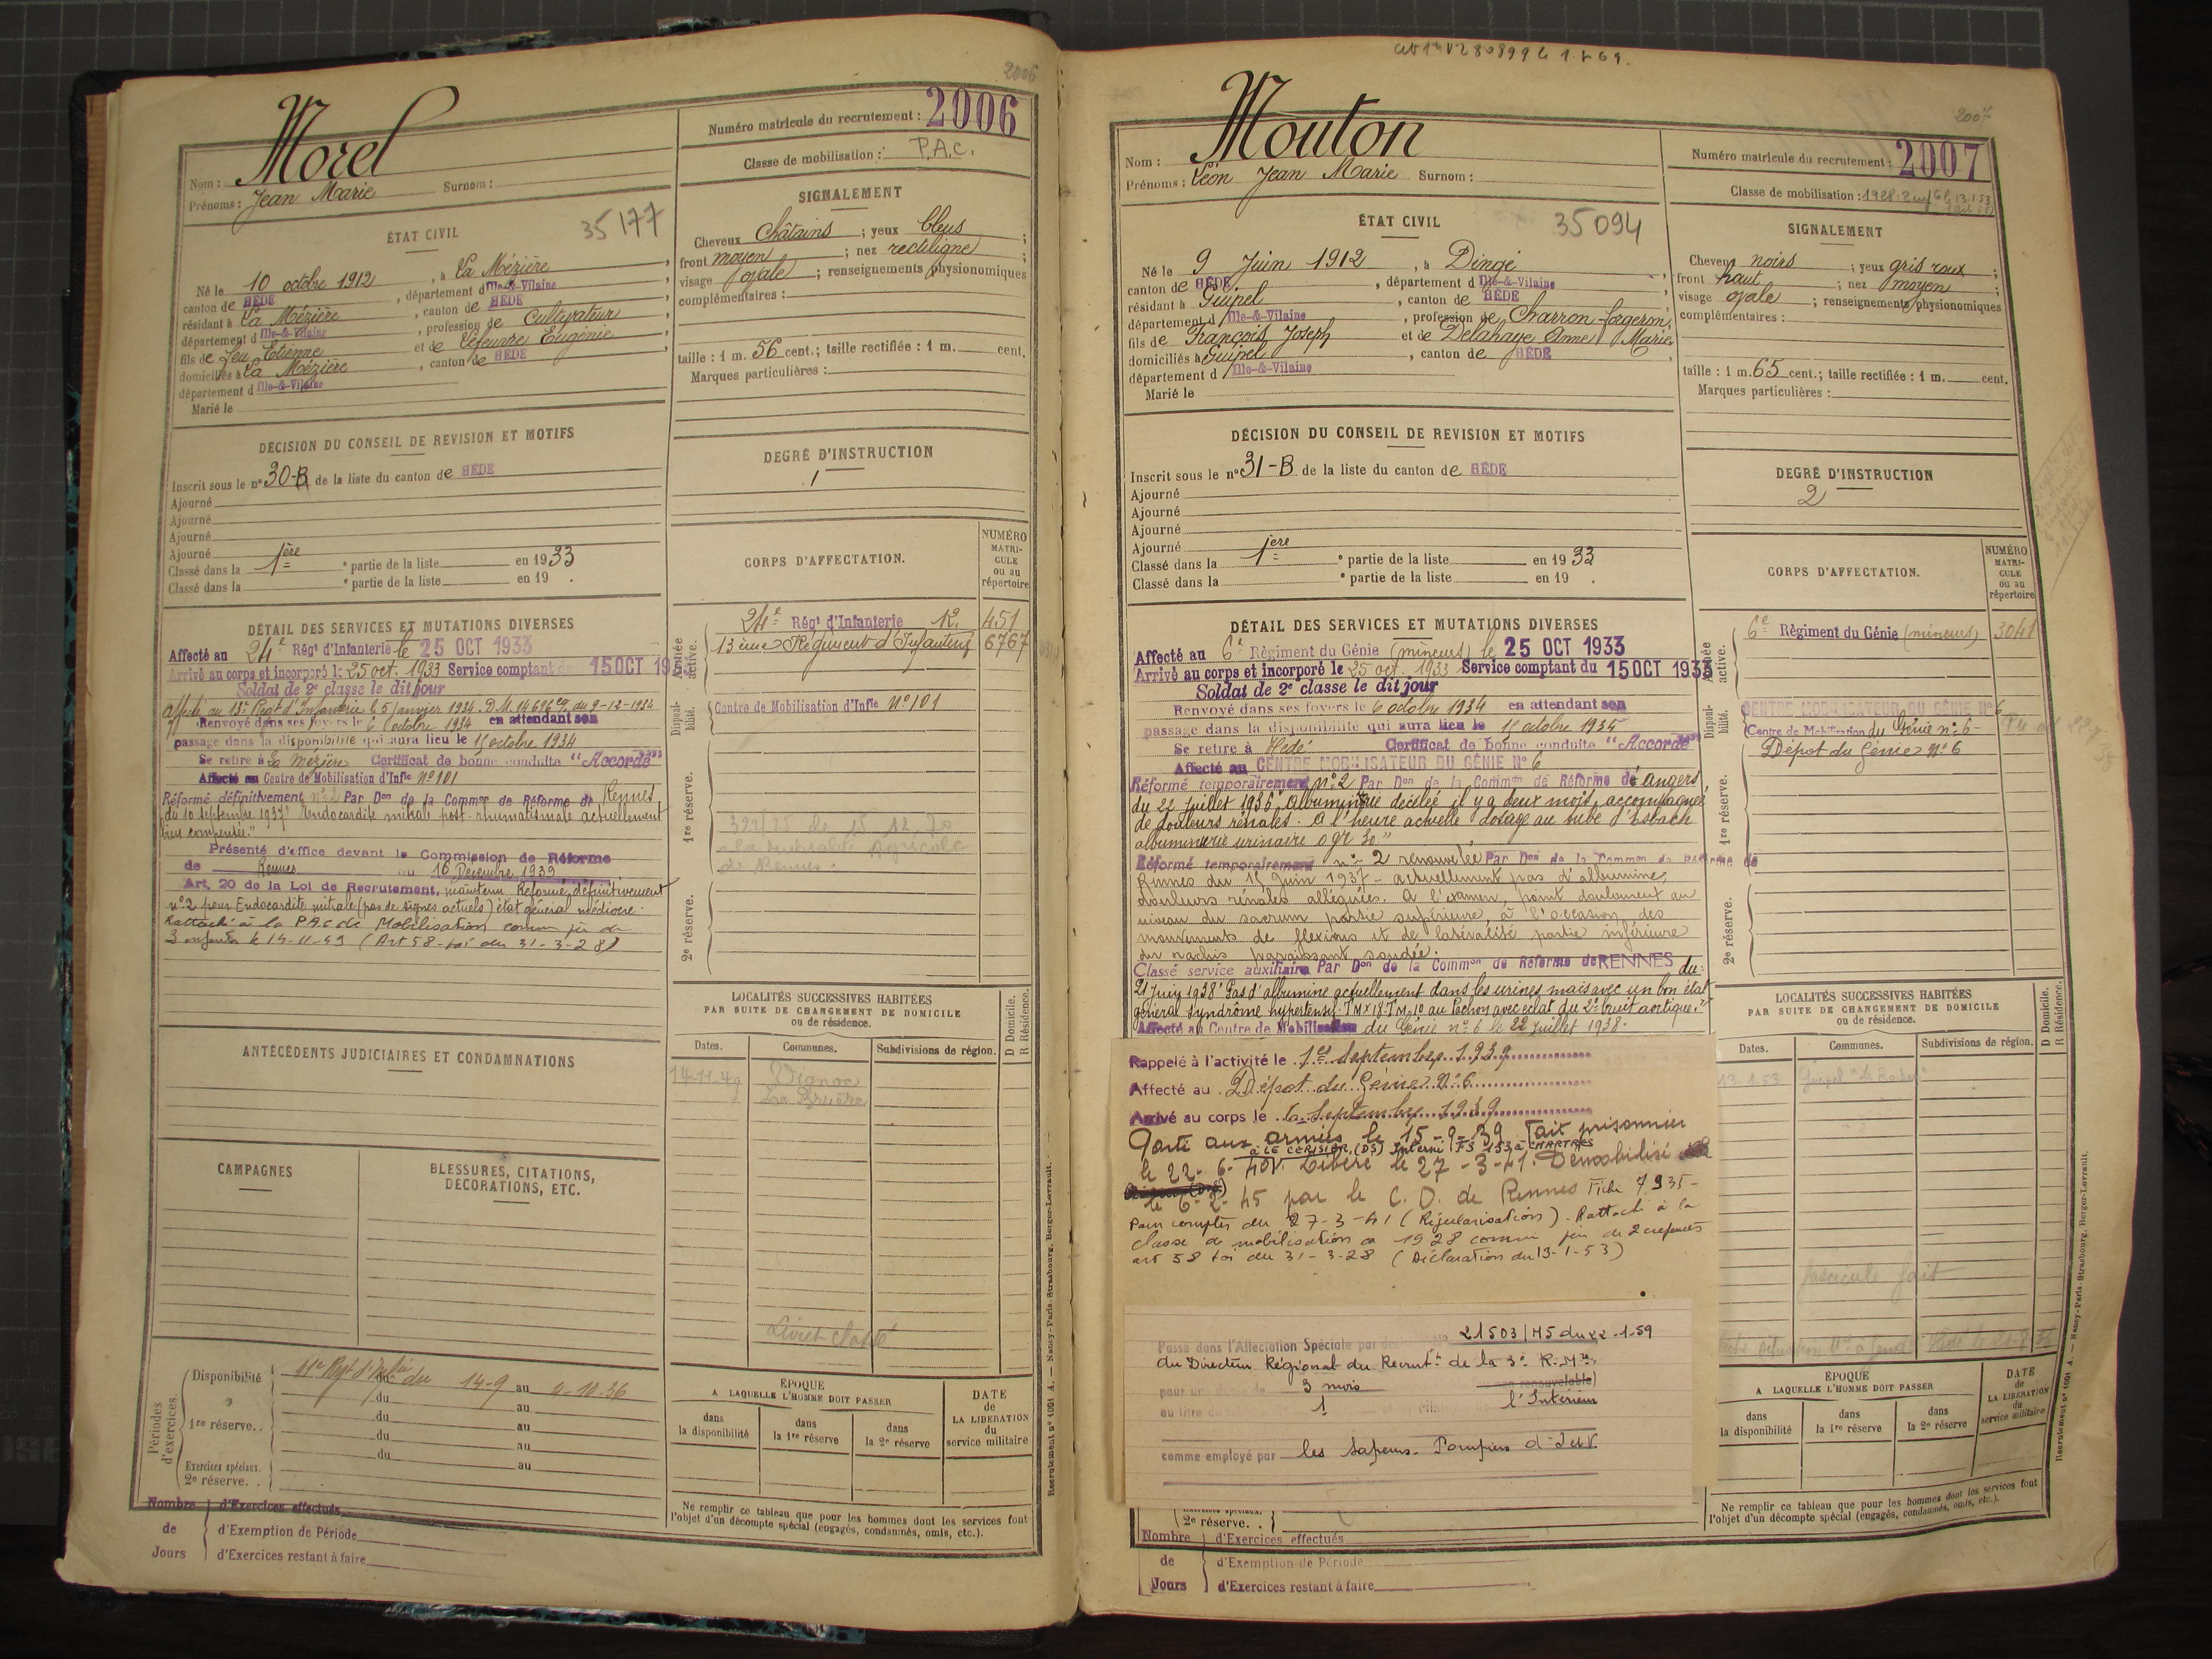 2006
Morel
Nom :
Prénoms : Jean Marie Surnom :
Numéro matricule du recrutement : 2006
Classe de mobilisation : P.A.C.
ÉTAT CIVIL
35177
Né le 10 octobre 1912, à La Mézière,
canton de HÉDÉ, département d'Ille-&-Vilaine
résidant à La Mézière, canton de HÉDÉ
département d Ille-&-Vilaine, profession de Cultivateur
fils de feu Etienne et de Lefeuvre Eugénie
domiciliés à La Mézière, canton de HÉDÉ
département d Ille-&-Vilaine
Marié le
SIGNALEMENT
Cheveux châtains ; yeux bleus ;
front moyen ; nez rectiligne ;
visage ovale ; renseignements physionomiques
complémentaires :
taille : 1 m. 56 cent.; taille rectifiée : 1 m. cent.
Marques particulières :
DÉCISION DU CONSEIL DE REVISION ET MOTIFS
Inscrit sous le n° 30-B de la liste du canton de HÉDÉ
Ajourné
Ajourné
Ajourné
Ajourné
Classé dans la 1ère partie de la liste en 1933
Classé dans la ° partie de la liste en 19 .
DEGRÉ D'INSTRUCTION
1
CORPS D'AFFECTATION.
NUMÉRO MATRI-CULE ou au répertoire
Armée active.
24e Régt d'Infanterie 451
13ème Régiment d'Infanterie 6767
Disponibilité.
Centre de Mobilisation d'Infie N°101
1re réserve.
de Rennes.
2e réserve.
DÉTAIL DES SERVICES ET MUTATIONS DIVERSES
Affecté au 24e Régt d'Infanterie le 25 OCT 1933
Arrivé au corps et incorporé le 25 oct. 1933 Service comptant du 15 OCT 193
Soldat de 2e classe le dit jour
Affecté au 13e Regt d'Infanterie le 5 janvier 1934. D.M. 14696 du 9-12-1934
Renvoyé dans ses foyers le 6 octobre 1934 en attendant son
passage dans la disponibilité qui aura lieu le 15 octobre 1934
Se retire à La Mézière Certificat de bonne conduite "Accordé"
Affecté au Centre de Mobilisation d'Infie N°101
Réformé définitivement n°2 Par Don de la Common de Réforme de Rennes
du 10 septembre 1937 "Endocardite mitrale post-rhumatismale actuellement
bien compensée."
Présenté d'office devant la Commission de Réforme
de Rennes du 16 Décembre 1939
Art. 20 de la Loi de Recrutement, maintenu Réformé définitivement
n°2 pour Endocardite mitrale (pas de signes actuels) état général médiocre.
Rattaché à la P.A.C de Mobilisation comme père de
3 enfants le 14-11-49 (Art 58 - loi du 31-3-28)
ANTÉCÉDENTS JUDICIAIRES ET CONDAMNATIONS
CAMPAGNES
BLESSURES, CITATIONS, DÉCORATIONS, ETC.
LOCALITÉS SUCCESSIVES HABITÉES
PAR SUITE DE CHANGEMENT DE DOMICILE
ou de résidence.
D Domicile. R Résidence.
Dates. Communes. Subdivisions de région.
14-11-49 Vignoc
La Bruère
Livret classé
Périodes d'exercices.
Disponibilité 11e Regt d'Infie du 14-9 au 4-10-36
du au
1re réserve. . du au
du au
du au
Exercices spéciaux. au
2e réserve. .
Nombre de Jours
d'Exercices effectués
d'Exemption de Période
d'Exercices restant à faire
ÉPOQUE
A LAQUELLE L'HOMME DOIT PASSER
dans la disponibilité
dans la 1re réserve
dans la 2e réserve
DATE de LA LIBÉRATION du service militaire
Ne remplir ce tableau que pour les hommes dont les services font
l'objet d'un décompte spécial (engagés, condamnés, omis, etc.).
Recrutement n° 1001 A. — Nancy-Paris-Strasbourg, Berger-Levrault.
2007
Mouton
Nom :
Prénoms : Léon Jean Marie Surnom :
Numéro matricule du recrutement : 2007
Classe de mobilisation : 1928
ÉTAT CIVIL
35094
Né le 9 Juin 1912, à Dingé,
canton de HÉDÉ, département d Ille-&-Vilaine
résidant à Guipel, canton de HÉDÉ
département d Ille-&-Vilaine, profession de Charron-forgeron,
fils de François Joseph et de Delahaye Anne Marie
domiciliés à Guipel, canton de HÉDÉ
département d Ille-&-Vilaine
Marié le
SIGNALEMENT
Cheveux noirs ; yeux gris roux ;
front haut ; nez moyen ;
visage ovale ; renseignements physionomiques
complémentaires :
taille : 1 m. 65 cent.; taille rectifiée : 1 m. cent.
Marques particulières :
DÉCISION DU CONSEIL DE REVISION ET MOTIFS
Inscrit sous le n° 31-B de la liste du canton de HÉDÉ
Ajourné
Ajourné
Ajourné
Ajourné
Classé dans la 1ere partie de la liste en 1933
Classé dans la ° partie de la liste en 19 .
DEGRÉ D'INSTRUCTION
2
CORPS D'AFFECTATION.
NUMÉRO MATRI-CULE ou au répertoire
Armée active.
6e Régiment du Génie (mineurs) 3041
Disponibilité.
CENTRE MOBILISATEUR DU GÉNIE N° 6
Centre de Mobilisation du Génie n° 6
Dépôt du Génie N° 6
1re réserve.
2e réserve.
DÉTAIL DES SERVICES ET MUTATIONS DIVERSES
Affecté au 6e Régiment du Génie (mineurs) le 25 OCT 1933
Arrivé au corps et incorporé le 25 oct. 1933 Service comptant du 15 OCT 1933
Soldat de 2e classe le dit jour
Renvoyé dans ses foyers le 6 octobre 1934 en attendant son
passage dans la disponibilité qui aura lieu le 15 octobre 1934
Se retire à Hédé Certificat de bonne conduite "Accordé"
Affecté au CENTRE MOBILISATEUR DU GÉNIE N° 6
Réformé temporairement n°2 Par Don de la Common de Réforme de angers
du 22 juillet 1936 "Albuminurie décelée il y a deux mois, accompagnée
de douleurs rénales. A l'heure actuelle dosage au tube d'Esbach
albuminurie urinaire 0gr 30"
Réformé temporairement n° 2 renouvelée Par Don de la Common de Réforme de
Rennes du 15 Juin 1937 - actuellement pas d'albumine,
douleurs rénales alléguées. A l'examen, point douloureux au
niveau du sacrum partie supérieure, à l'occasion des
mouvements de flexions et de latéralité partie inférieure
du rachis paraissant soudée.
Classé service auxiliaire Par Don de la Common de Réforme de RENNES du
21 juin 1938 "Pas d'albumine actuellement dans les urines mais avec un bon état
général syndrôme hypertensif. TMx 18 TMn 10 au Pachon avec éclat du 2e bruit aortique."
Affecté au Centre de Mobilisation du Génie n° 6 le 22 juillet 1938.
Rappelé à l'activité le 1er Septembre 1939
Affecté au Dépôt du Génie N° 6
Arrivé au corps le 6 Septembre 1939
Parti aux armées le 15-9-39 Fait prisonnier
à LE CERISIER (DS) Interné FS 153 à CHARTRES
le 22-6-40. Libéré le 27-3-41. Démobilisé
le 6-2-45 par le C. D. de Rennes Fiche 7935-
Pour compter du 27-3-41 (Régularisation). Rattaché à la
classe de mobilisation de 1928 comme père de 2 enfants
art 58 loi du 31-3-28 (Déclaration du 13-1-53)
Passé dans l'Affectation Spéciale par décision 21503/M5 du 22-1-59
du Directeur Régional du Recrutt de la 3e R.Mre.
pour une durée de 3 mois non renouvelable)
au titre du 1 l'Intérieur
comme employé par les Sapeurs-Pompiers d'I et V.
LOCALITÉS SUCCESSIVES HABITÉES
PAR SUITE DE CHANGEMENT DE DOMICILE
ou de résidence.
D Domicile. R Résidence.
Dates. Communes. Subdivisions de région.
13.1.53 Guipel
fascicule fait
ÉPOQUE
A LAQUELLE L'HOMME DOIT PASSER
dans la disponibilité
dans la 1re réserve
dans la 2e réserve
DATE de LA LIBÉRATION du service militaire
Ne remplir ce tableau que pour les hommes dont les services font
l'objet d'un décompte spécial (engagés, condamnés, omis, etc.).
Exercices spéciaux.
2e réserve. .
Nombre de Jours
d'Exercices effectués
d'Exemption de Période
d'Exercices restant à faire
Recrutement n° 1001 A. — Nancy-Paris-Strasbourg, Berger-Levrault.